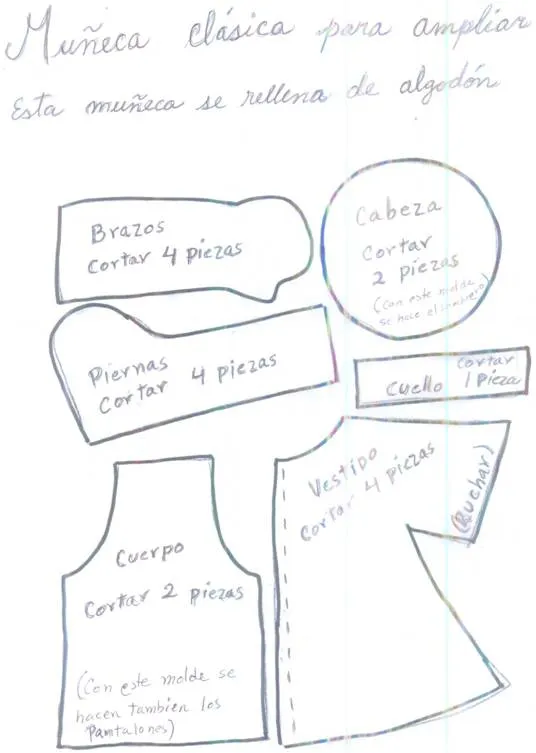 Muñeca clásica para ampliar
Esta muñeca se rellena de algodón
Brazos
Cortar 4 piezas
Cabeza
Cortar
2 piezas
(Con este molde
se hace el sombrero)
Piernas
Cortar 4 piezas
Cuello
Cortar
1 Pieza
Vestido
Cortar 4 piezas
(Buchar)
Cuerpo
Cortar 2 piezas
(Con este molde se
hacen tambien los
Pantalones)